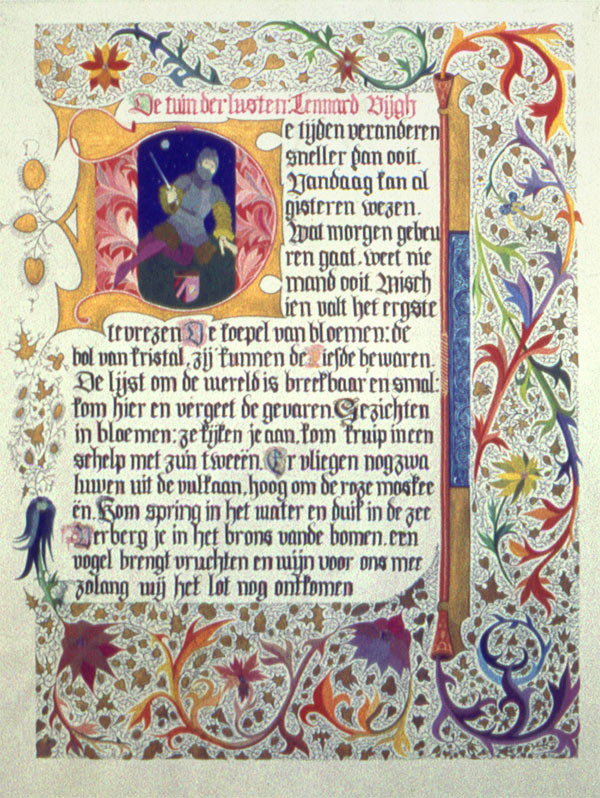 De tuin der lusten: Lennard Nijgh
De tijden veranderen
sneller dan ooit.
Vandaag kan al
gisteren wezen.
Wat morgen gebeu
ren gaat, weet nie
mand ooit. Misch
ien valt het ergste
te vrezen De koepel van bloemen: de
bol van kristal, zij kunnen de liefde bewaren.
De lijst om de wereld is breekbaar en smal:
kom hier en vergeet de gevaren. Gezichten
in bloemen: ze kijken je aan, kom kruip in een
schelp met zún tweeën. Er vliegen nog zwa
luwen uit de vulkaan, hoog om de roze moskee
ën. Kom spring in het water en duik in de zee
Verberg je in het brons van de bomen, een
vogel brengt vruchten en wijn voor ons mee
zolang wij het lot nog ontkomen